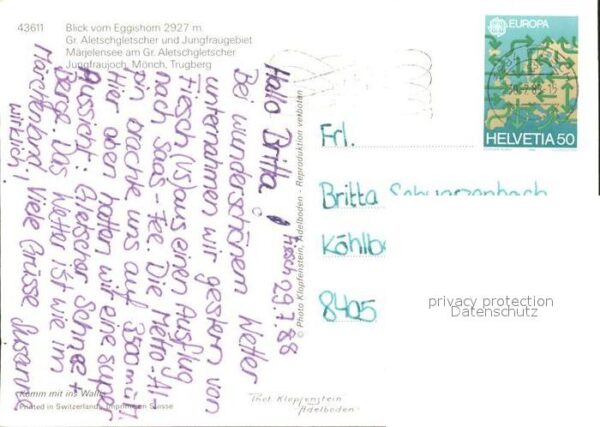 43611 Blick vom Eggishorn 2927 m
Gr. Aletschgletscher und Jungfraugebiet
Märjelensee am Gr. Aletschgletscher
Jungfraujoch, Mönch, Trugberg
Fiesch 29.7.88
Hallo Britta!
Bei wunderschönem Wetter
unternahmen wir gestern von
Fiesch (Vs) aus einen Ausflug
nach Saas-Fee. Die Metro-Al-
pin brachte uns auf 3500 m ü.M.
Hier oben hatten wir eine super
Aussicht: Gletscher Schnee +
Berge. Das Wetter ist wie im
Märchenland
wirklich! Viele Grüsse Susanne
© Photo Klopfenstein, Adelboden - Reproduktion verboten
Komm mit ins Wallis
Printed in Switzerland, Imprimé en Suisse
Phot. Klopfenstein
Adelboden
CEPT EUROPA
HELVETIA 50
Frl.
Britta Schwarzenbach
Köhlb
8405
privacy protection
Datenschutz